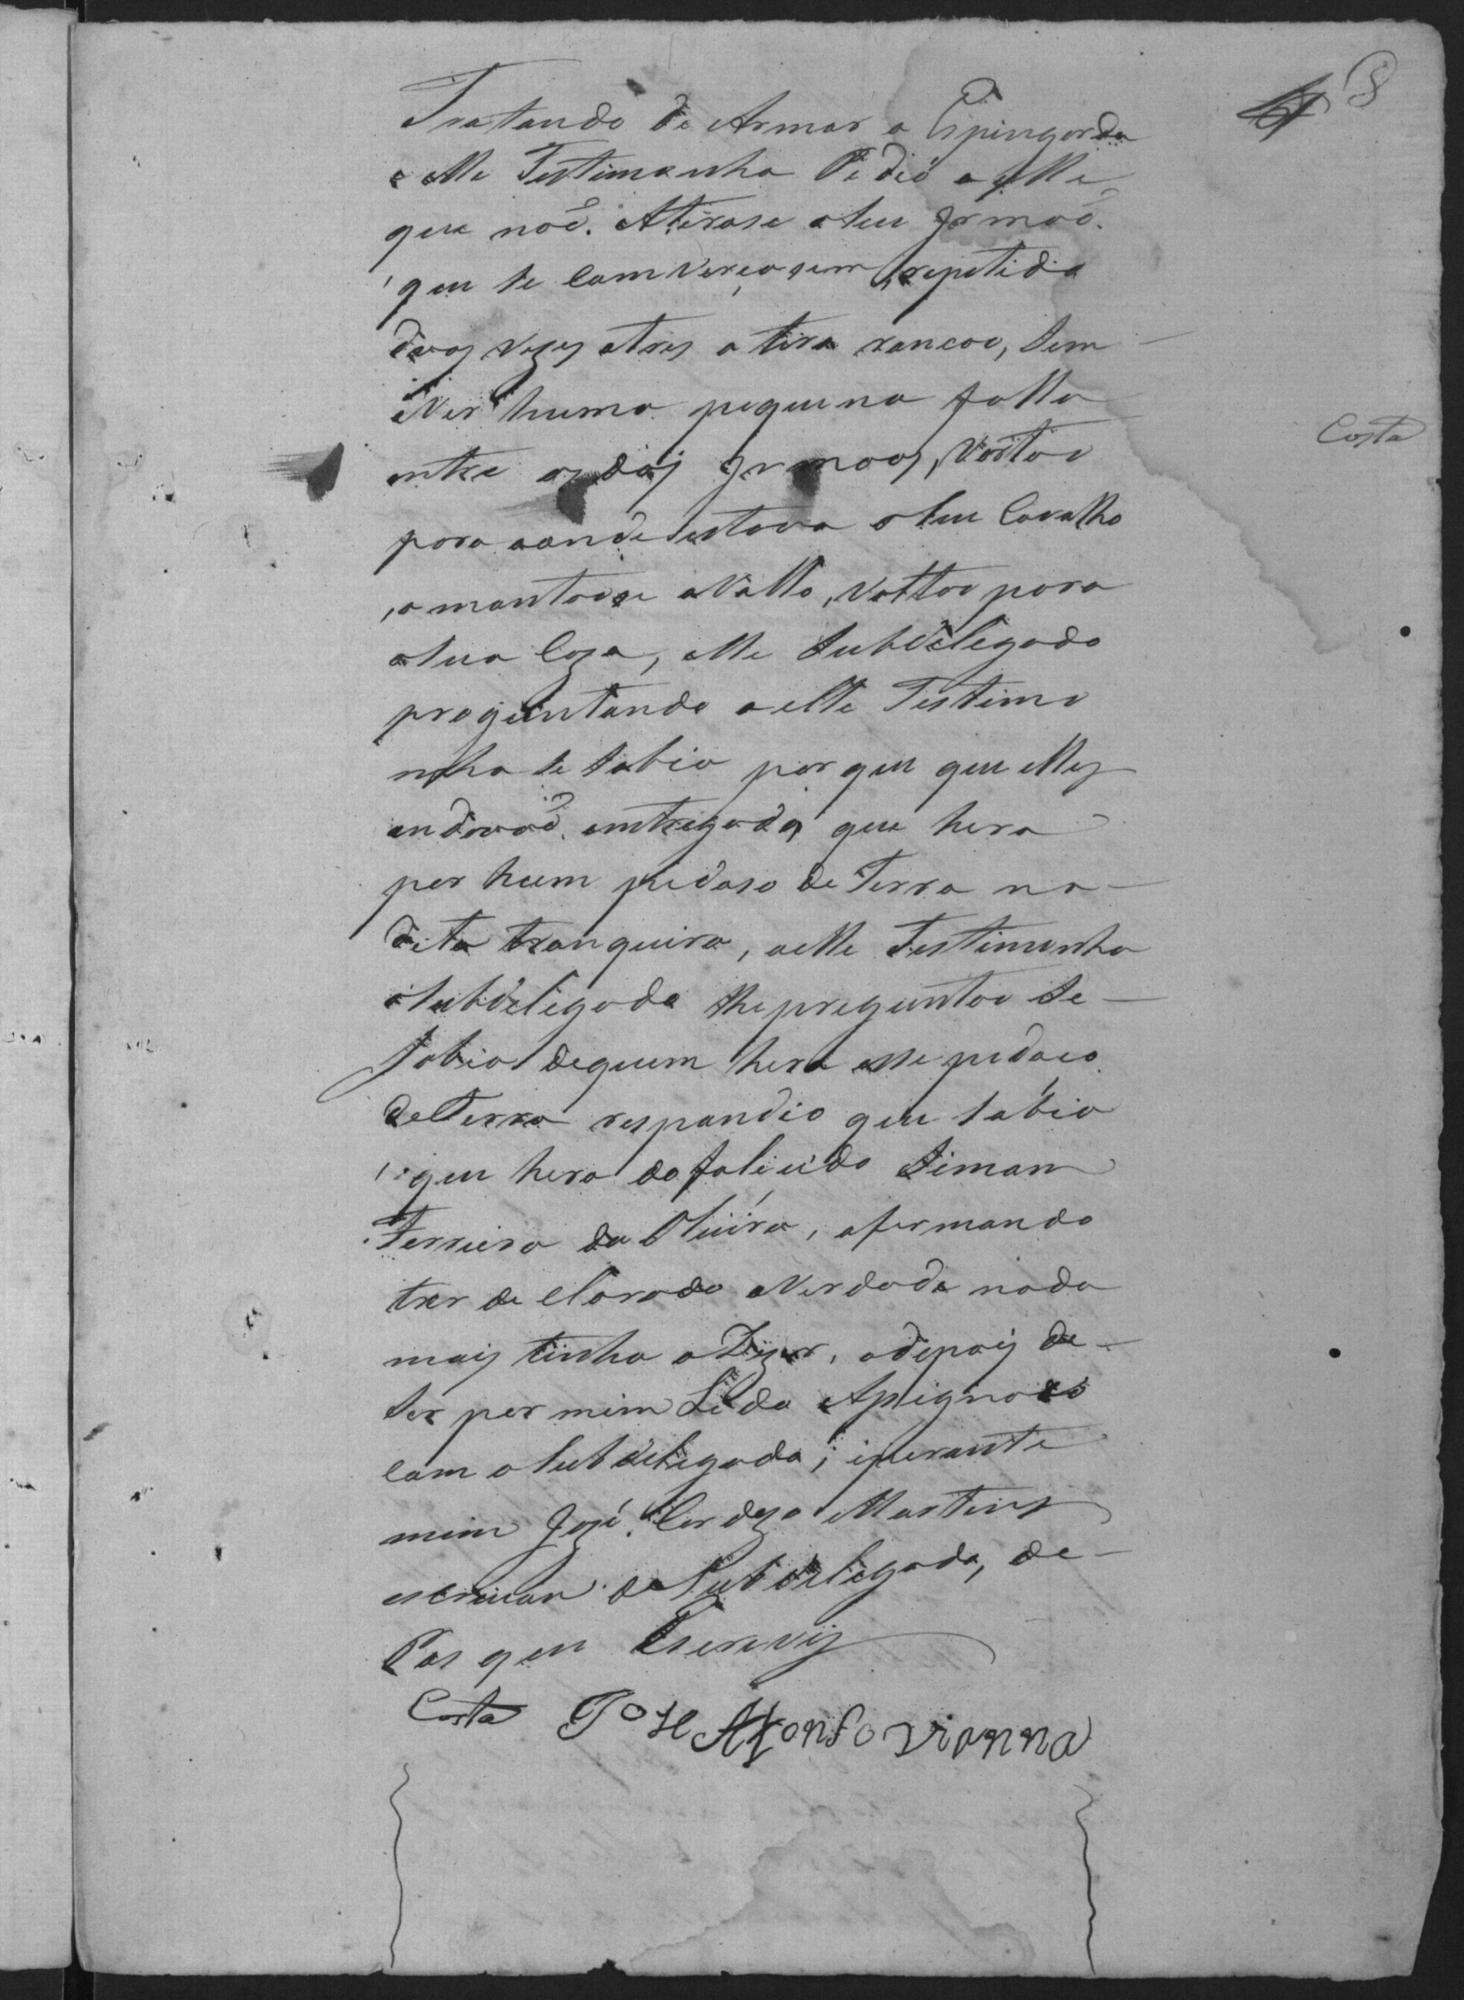 8
Tratando de Armar a Espingarda
e elle Testimanha Pedio a elle
que noõ. Atirase a seu Jrmoõ.
que se Comverçosem, repitida
duas vezes atres a tira rancou, sem
Ver huma pequena falla
entre os dois Jrmoos, Voltou
para aande estava o seu Cavalho
amantouse aVallo, Voltou para
a sua Caza, elle Subdelegado
preguntando a elle Testimo
nha se sabia por que que elles
andavaõ. entregados que hera
por hum pedaso de Terra na
dita tranqueira, a elle Testimunha
o Subdelegado lhe preguntou se
Sabia dequem hera esse pedaco
de Terra respondio que sabia
que hera do falicido Simam
Ferreira da Oliveira, afirmando
ter de Clarado a Verdade nada
mais tinha a Dizer, adepois de
ser por mim Lido Asignoes
Com o Subdelegado; iperante
mim José Cardozo Martins
escrivan da Subdelegada, de
Pas que Escrevij
Costa José Afonso Vianna
Costa